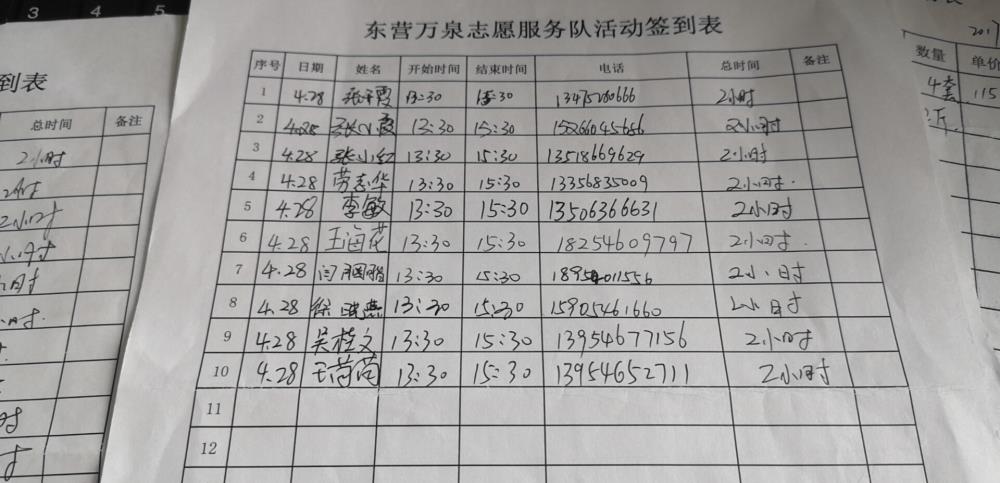 东营万泉志愿服务队活动签到表
序号 日期 姓名 开始时间 结束时间 电话 总时间 备注
1 4.28 13:30 15:30 2小时
2 4.28 13:30 15:30 15266045656 2小时
3 4.28 张小红 13:30 15:30 13518669629 2小时
4 4.28 劳志华 13:30 15:30 13356835009 2小时.
5 4.28 李敏 13:30 15:30 13506366631 2小时
6 4.28 王海花 13:30 15:30 18254609797 2小时.
7 4.28 闫胭脂 13:30 15:30 2小时
8 4.28 徐晓燕 13:30 15:30 15905461660 2小时
9 4.28 吴桂文 13:30 15:30 13954677156 2小时
10 4.28 王芮芮 13:30 15:30 13954652711 2小时
11
12
到表
总时间 备注
2小时
2小时
2小时
小时
小时
小时.
时
时
2017
数量 单价
4套 115
3 4 5